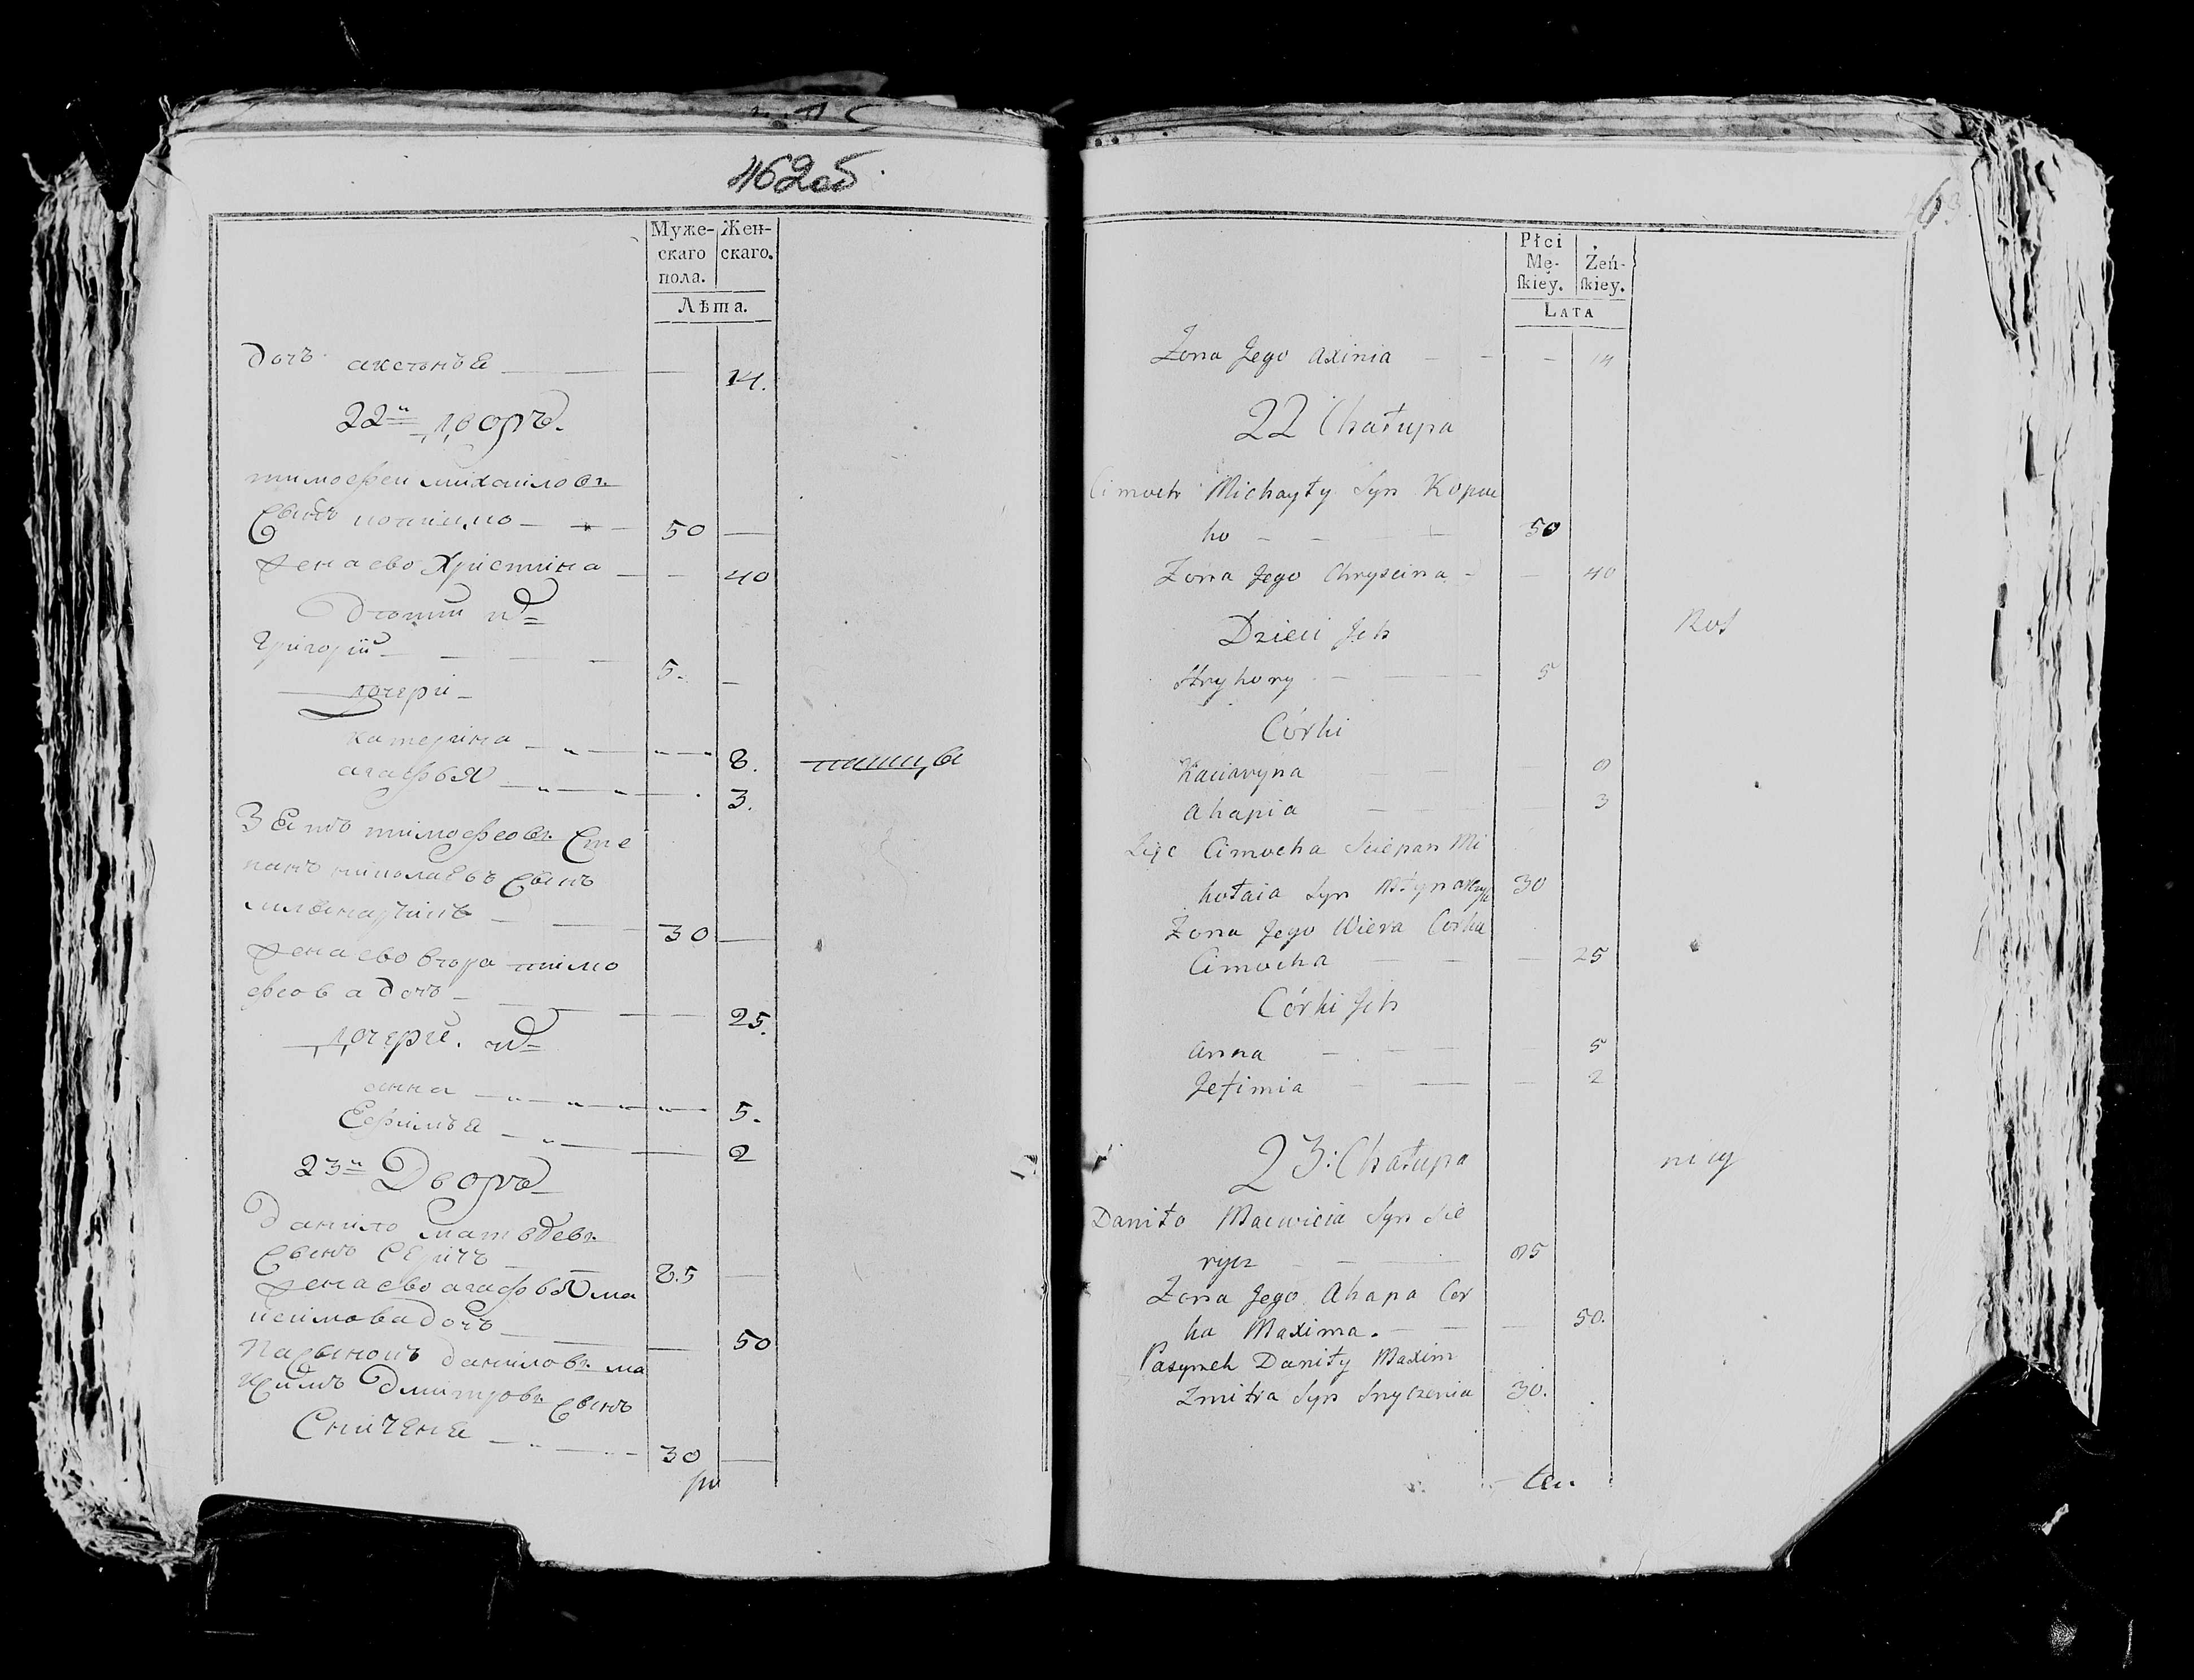 462об
Муже-
скаго
пола.
Жен-
скаго.
Лѣта.
дочъ аксѣньѣ 14.
22й дворъ.
тимофеи михаиловъ
сынъ 50
жена ево христина 40
дѣти их
григорій 5.
дочери
катерина 8.
агафья 3.
пашицы
зѣть тимофеовъ сте
панъ николаевъ сынъ
30
жена ево вѣра тимо
феова дочь 25.
дочери их
анна 5.
Ефимья 2
23й дворъ
данило матвѣевъ
сынъ 85
жена ево агафья ма
ксимова дочь 50
пасынокъ даниловъ ма
ксимъ дмитровъ сынъ
Сничѣнѣ 30
63.
Płci
Mę-
skiey.
Żeń-
skiey.
LATA
Zona Jego Axinia 14
22 Chałupa
Cimoch Michayły Syn Kopue
ho 50
Zona Jego Chryscina 40
Dzieci Jch
Hryhory 5
Córki
Kaciaryna 8
Ahapia 3
Zięc Cimocha Sciepan Mi
kołaia Syn 30
Zona Jego Wiera Corka
Cimocha 25
Córki Jch
Anna 5
Jefimia 2
23: Chałupa
Daniło Macwieia Syn Sie
rycz 85
Zona Jego Ahapa Cor
ka Maxima. 50.
Pasynek Daniły Maxim
Zmitra Syn Snyczenia 30.